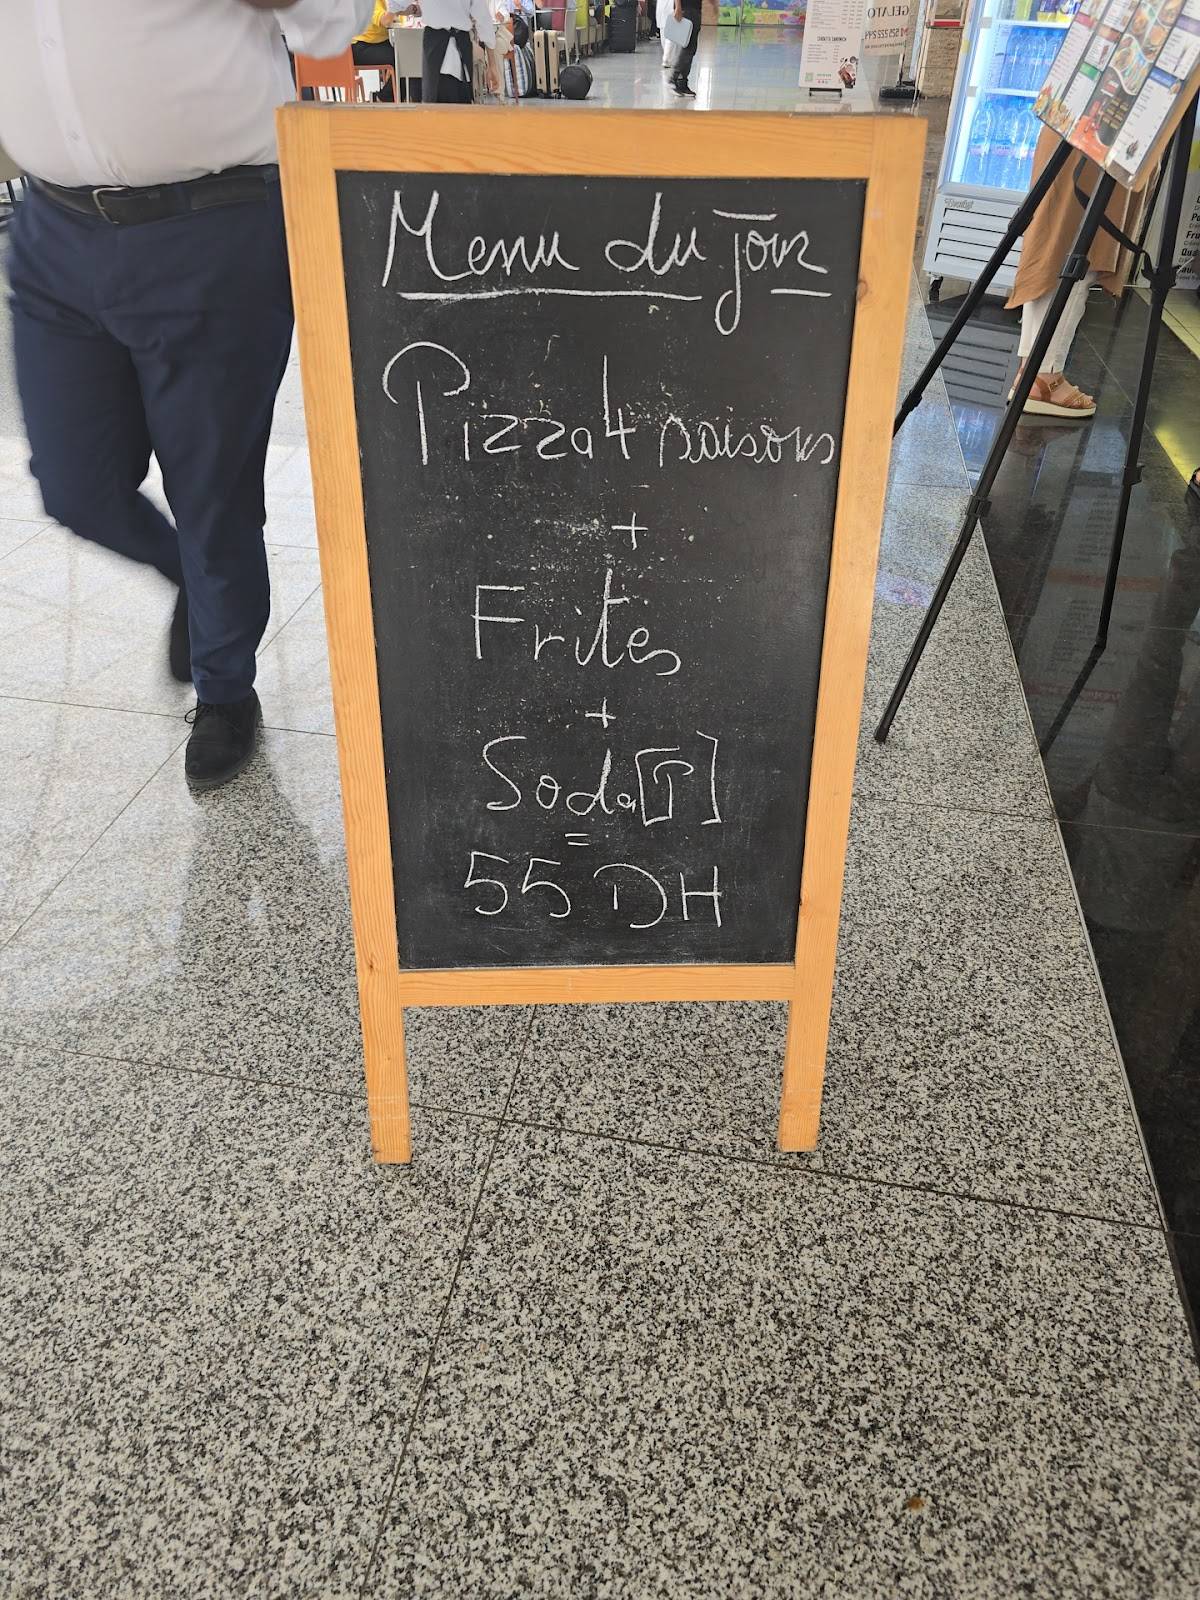 Menu du jour
Pizza 4 saisons
+
Frites
+
Soda [P]
=
55 DH
GELATO